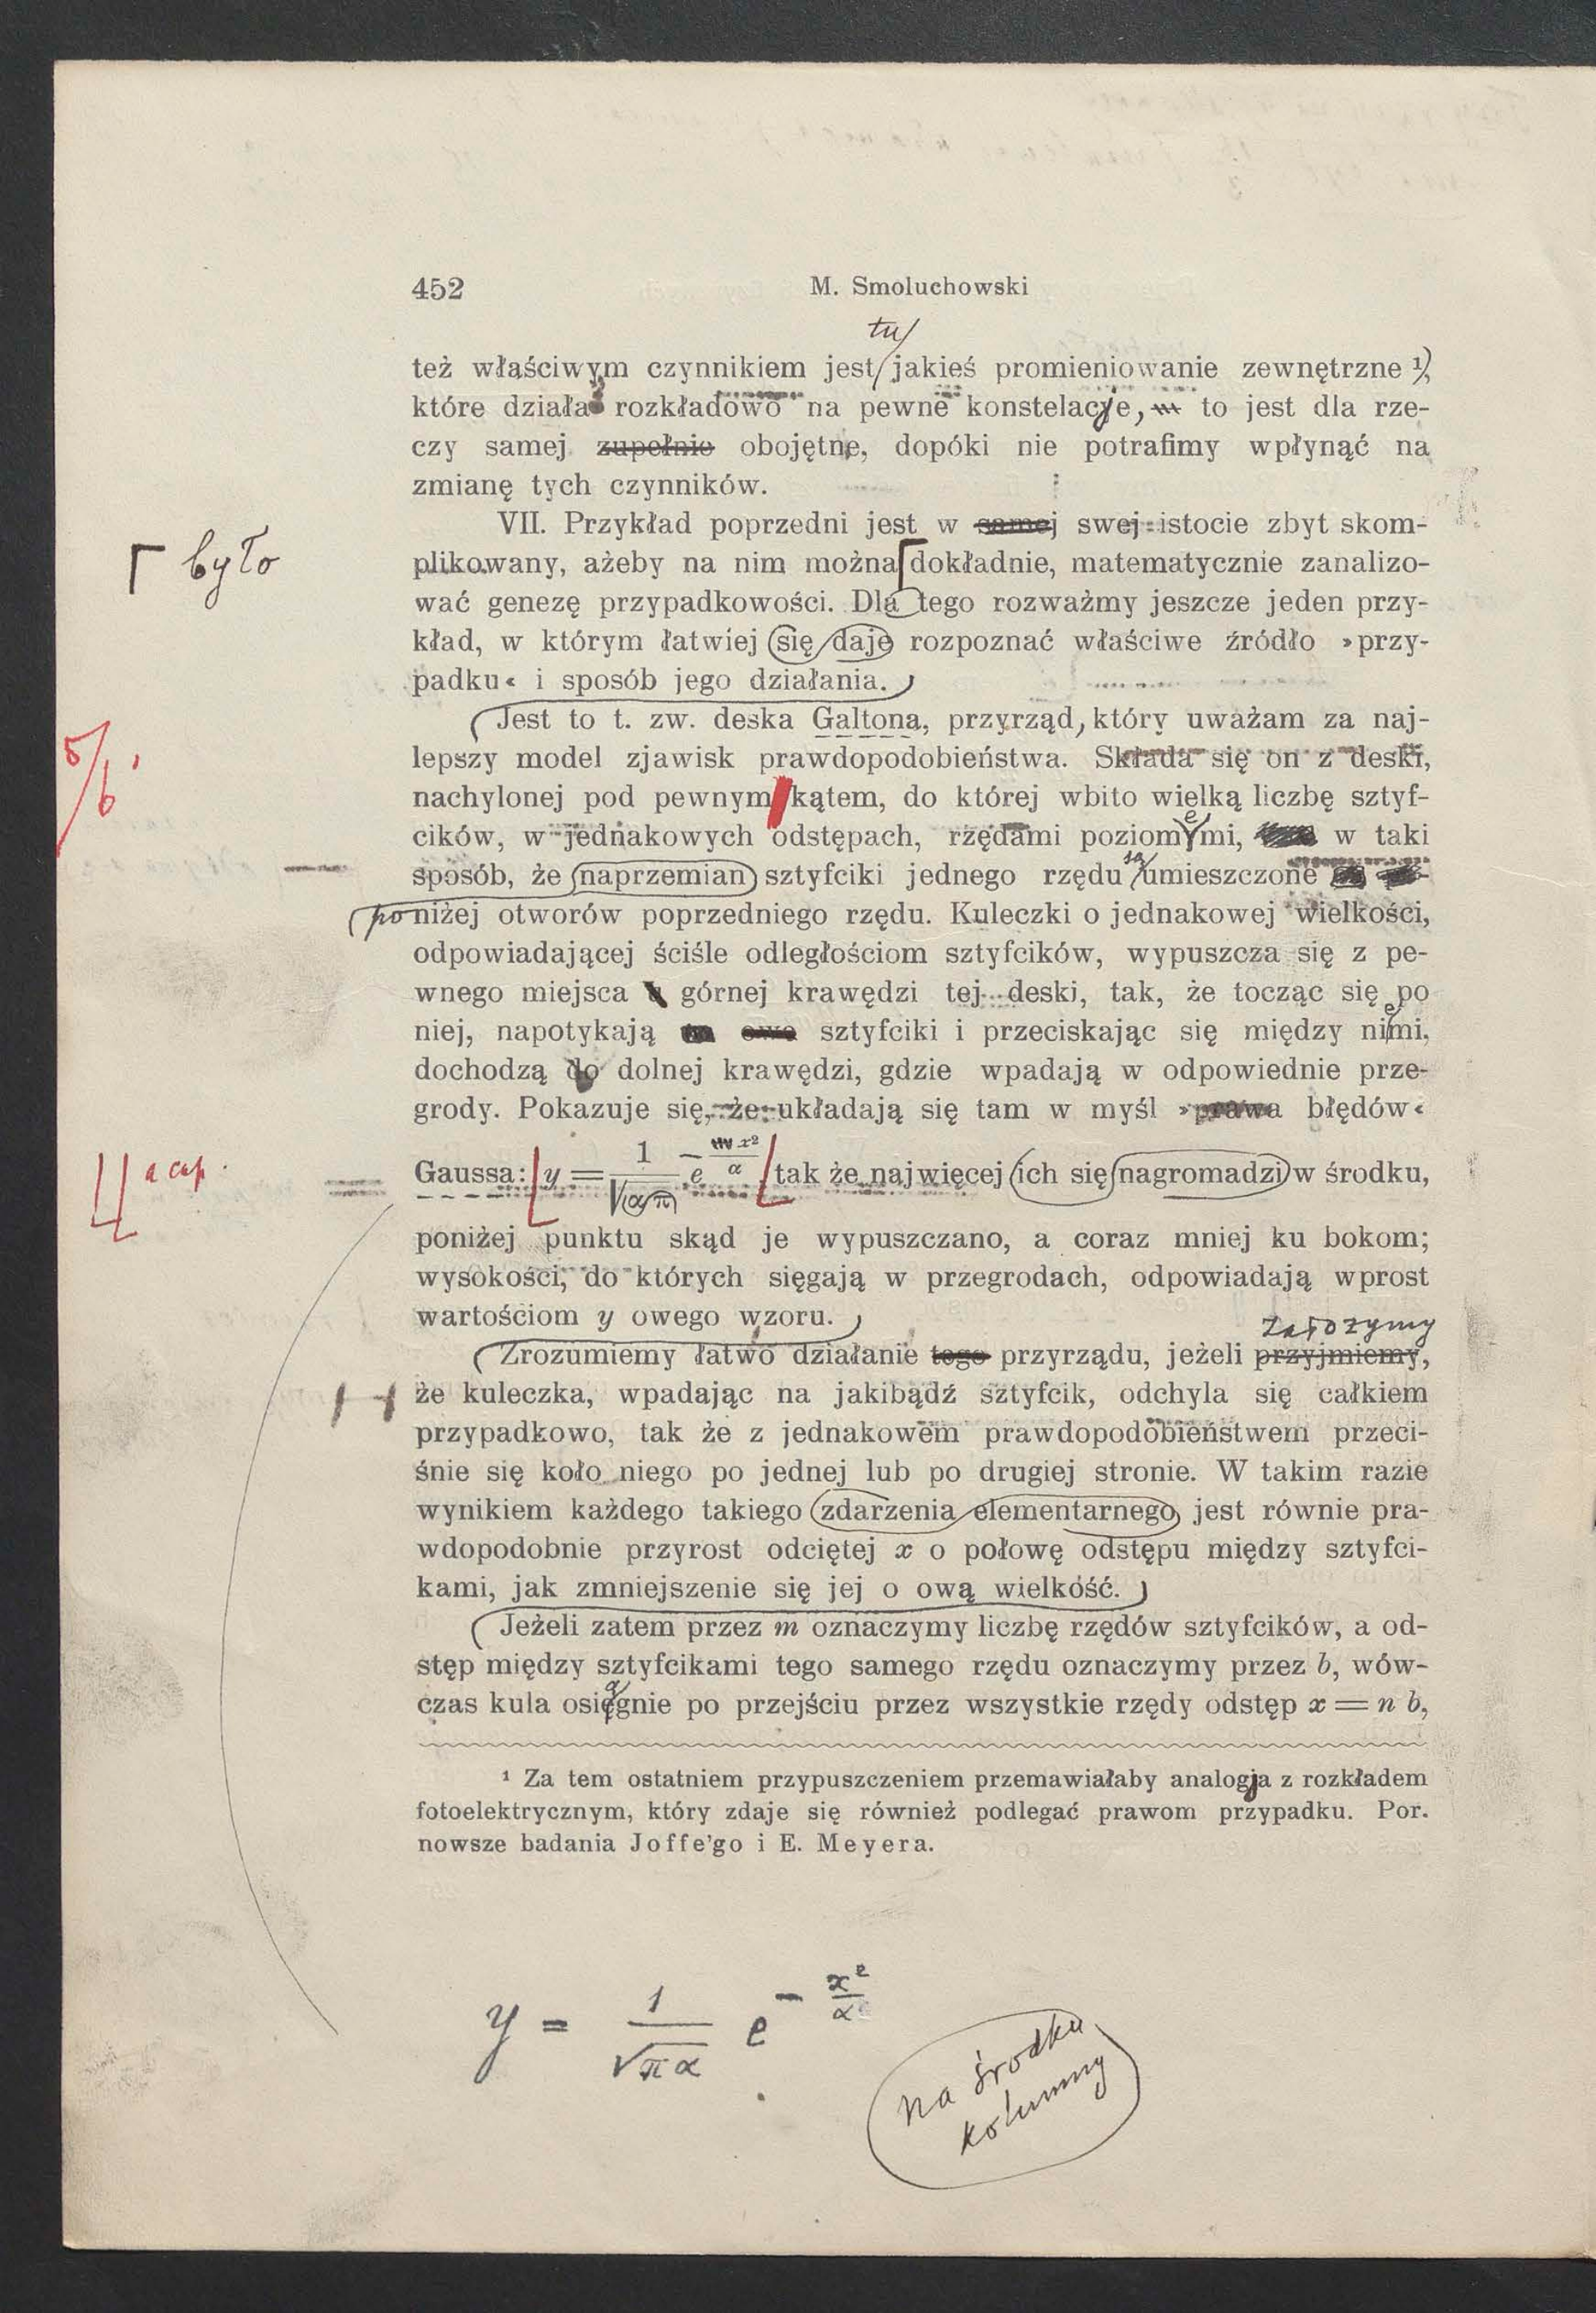 452
M. Smoluchowski
tu
też właściwym czynnikiem jest jakieś promieniowanie zewnętrzne ¹),
które działa rozkładowo na pewne konstelacje, to jest dla rze-
czy samej zupełnie obojętne, dopóki nie potrafimy wpłynąć na
zmianę tych czynników.
VII. Przykład poprzedni jest w samej swej istocie zbyt skom-
było
plikowany, ażeby na nim można dokładnie, matematycznie zanalizo-
wać genezę przypadkowości. Dla tego rozważmy jeszcze jeden przy-
kład, w którym łatwiej się daje rozpoznać właściwe źródło »przy-
padku« i sposób jego działania.
Jest to t. zw. deska Galtona, przyrząd, który uważam za naj-
5/6
lepszy model zjawisk prawdopodobieństwa. Składa się on z deski,
nachylonej pod pewnym kątem, do której wbito wielką liczbę sztyf-
cików, w jednakowych odstępach, rzędami poziomemi, w taki
sposób, że naprzemian sztyfciki jednego rzędu są umieszczone
poniżej otworów poprzedniego rzędu. Kuleczki o jednakowej wielkości,
odpowiadającej ściśle odległościom sztyfcików, wypuszcza się z pe-
wnego miejsca górnej krawędzi tej deski, tak, że tocząc się po
niej, napotykają owe sztyfciki i przeciskając się między niemi,
dochodzą do dolnej krawędzi, gdzie wpadają w odpowiednie prze-
grody. Pokazuje się, że układają się tam w myśl »prawa błędów«
Gaussa: y = 1/√(απ) e^(− x²/α) tak że najwięcej ich się nagromadzi w środku,
poniżej punktu skąd je wypuszczano, a coraz mniej ku bokom;
wysokości, do których sięgają w przegrodach, odpowiadają wprost
wartościom y owego wzoru.
założymy
Zrozumiemy łatwo działanie tego przyrządu, jeżeli przyjmiemy,
że kuleczka, wpadając na jakibądź sztyfcik, odchyla się całkiem
przypadkowo, tak że z jednakowem prawdopodobieństwem przeci-
śnie się koło niego po jednej lub po drugiej stronie. W takim razie
wynikiem każdego takiego zdarzenia elementarnego jest równie pra-
wdopodobnie przyrost odciętej x o połowę odstępu między sztyfci-
kami, jak zmniejszenie się jej o ową wielkość.
Jeżeli zatem przez m oznaczymy liczbę rzędów sztyfcików, a od-
stęp między sztyfcikami tego samego rzędu oznaczymy przez b, wów-
czas kula osiągnie po przejściu przez wszystkie rzędy odstęp x = n b,
¹ Za tem ostatniem przypuszczeniem przemawiałaby analogja z rozkładem
fotoelektrycznym, który zdaje się również podlegać prawom przypadku. Por.
nowsze badania Joffe'go i E. Meyera.
y = 1/√(πα) e^(− x²/α)
na środku
kolumny